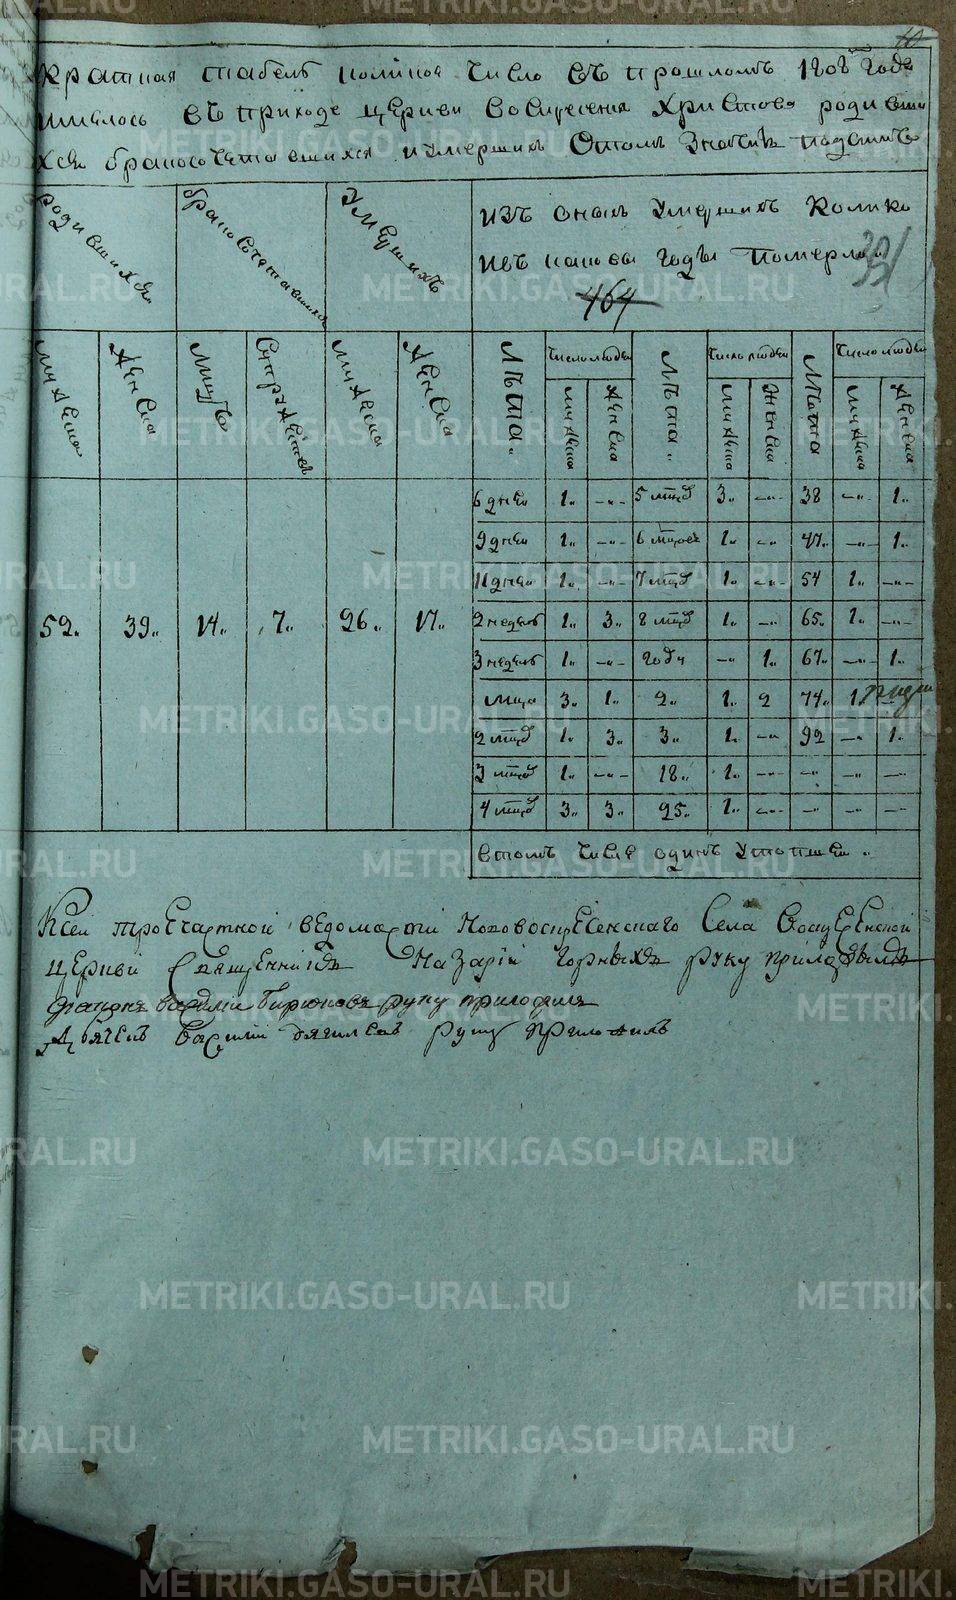 Краткая табель коликое число въ прошломъ 1808м годе
имелось въ приходе церкви воскресения Христова родивши
хся бракосочетавшихся и умершихъ Отомъ значитъ подсимъ
родившихся
бракосочетавшихся
умершихъ
изъ оныхъ умершихъ колико
въ каковы годы померло
464
мужеска
женска
мужъ
супружествъ
мужеска
женска
Лѣта
число людей
Лѣта
число людей
Лѣта
число людей
мужеска
женска
мужеска
женска
мужеска
женска
6 дней 1 -"- 5 мцов 3 -"- 38 -"- 1
9 дней 1 -"- 6 мцовъ 1 -"- 47 -"- 1
11 дней 1 -"- 7 мцов 1 -"- 54 1 -"-
52 39 14 7 26 17 2 недель 1 3 8 мцов 1 -"- 65 1 -"-
3 недель 1 -"- году -"- 1 67 -"- 1
мца 3 1 2 1 2 74 1
2 мцов 1 3 3 1 -"- 92 -"- 1
3 мцов 1 -"- 18 1 -"- -"- -"- -"-
4 мцов 3 3 25 1 -"- -"- -"- -"-
втомъ числе одинъ утопшей
Ксей троечастной ведомасти Нововоскресенскаго Села Воскресенской
церкви священникъ Назарій Горныхъ руку приложилъ
диаконъ василий Бирюковъ руку приложилъ
Дьячекъ Василий руку приложилъ
METRIKI.GASO-URAL.RU